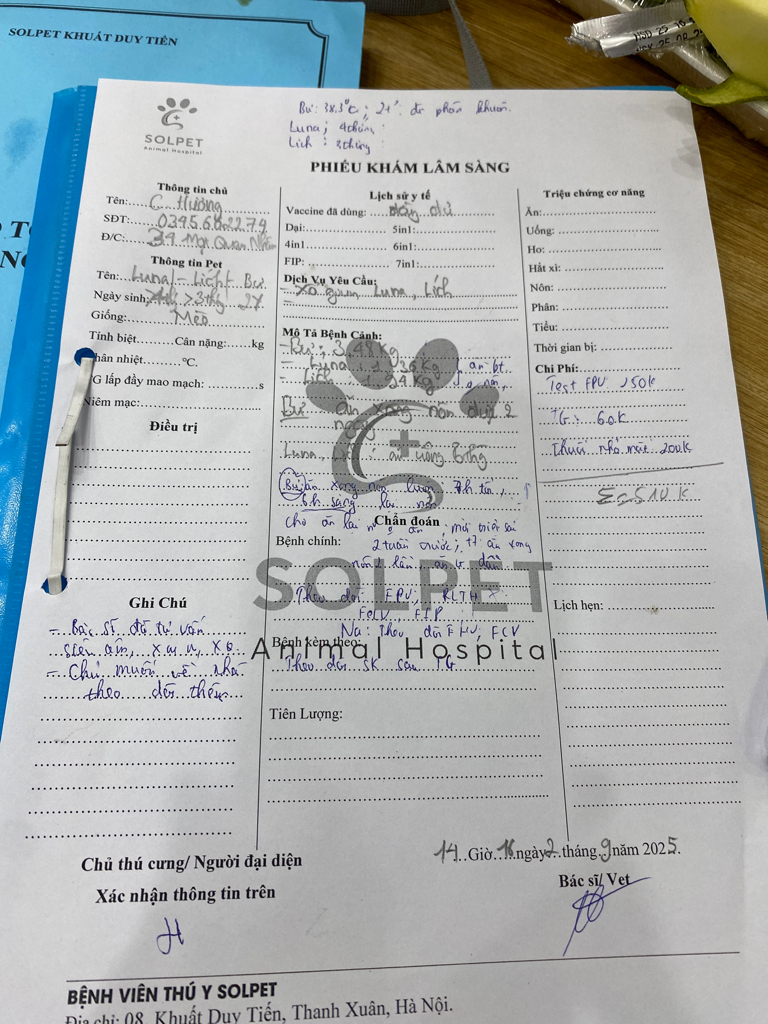 SOLPET KHUẤT DUY TIẾN
SOLPET
Animal Hospital
Bư: 38.3°C; 2+: đo phân khuôn.
Luna; 4 tháng
Lích: 3 tháng
PHIẾU KHÁM LÂM SÀNG
Thông tin chủ
Tên: C Hương
SĐT:
Đ/C: 34
Thông tin Pet
Tên: Luna - Lích - Bư
Ngày sinh: > 3 thg 2X
Giống: Mèo
Tính biệt Cân nặng: kg
Thân nhiệt °C.
TG lấp đầy mao mạch: s
Niêm mạc:
Điều trị
Ghi Chú
- Bác sĩ đã tư vấn
siêu âm, x
- Chủ muốn về nhà
theo dõi thêm
Lịch sử y tế
Vaccine đã dùng: đầy đủ
Dại: 5in1:
4in1 6in1:
FIP: 7in1:
Dịch Vụ Yêu Cầu:
- Xổ giun Luna, Lích
Mô Tả Bệnh Cảnh:
- Bư: 3.48 kg
- Luna: 1.36 kg ăn bt
- Lích kg
Bư ăn xong nôn 2
ngày
Luna, Lích: ăn uống bthg
Bư: ăn xong nôn luôn 7h tối,
6h sáng lại nôn
cho ăn lại ăn, mới triệt sản
Chẩn đoán
Bệnh chính: 2 tuần trước; ăn xong
nôn 2 lần
Theo dõi FPV; RLTH
FeLV FIP
Na: Theo dõi FHV, FCV
SOLPET
Animal Hospital
Bệnh kèm theo:
Theo dõi sk sau TG
Tiên Lượng:
Triệu chứng cơ năng
Ăn:
Uống:
Ho:
Hắt xì:
Nôn:
Phân:
Tiểu:
Thời gian bị:
Chi Phí:
Test FPV 250k
TG: 60k
Thuốc nhỏ mắt 200k
Σ = 510k
Lịch hẹn:
14 Giờ 16 ngày 2 tháng 9 năm 2025.
Chủ thú cưng/ Người đại diện
Xác nhận thông tin trên
Bác sĩ/ Vet
BỆNH VIỆN THÚ Y SOLPET
Địa chỉ: 08, Khuất Duy Tiến, Thanh Xuân, Hà Nội.